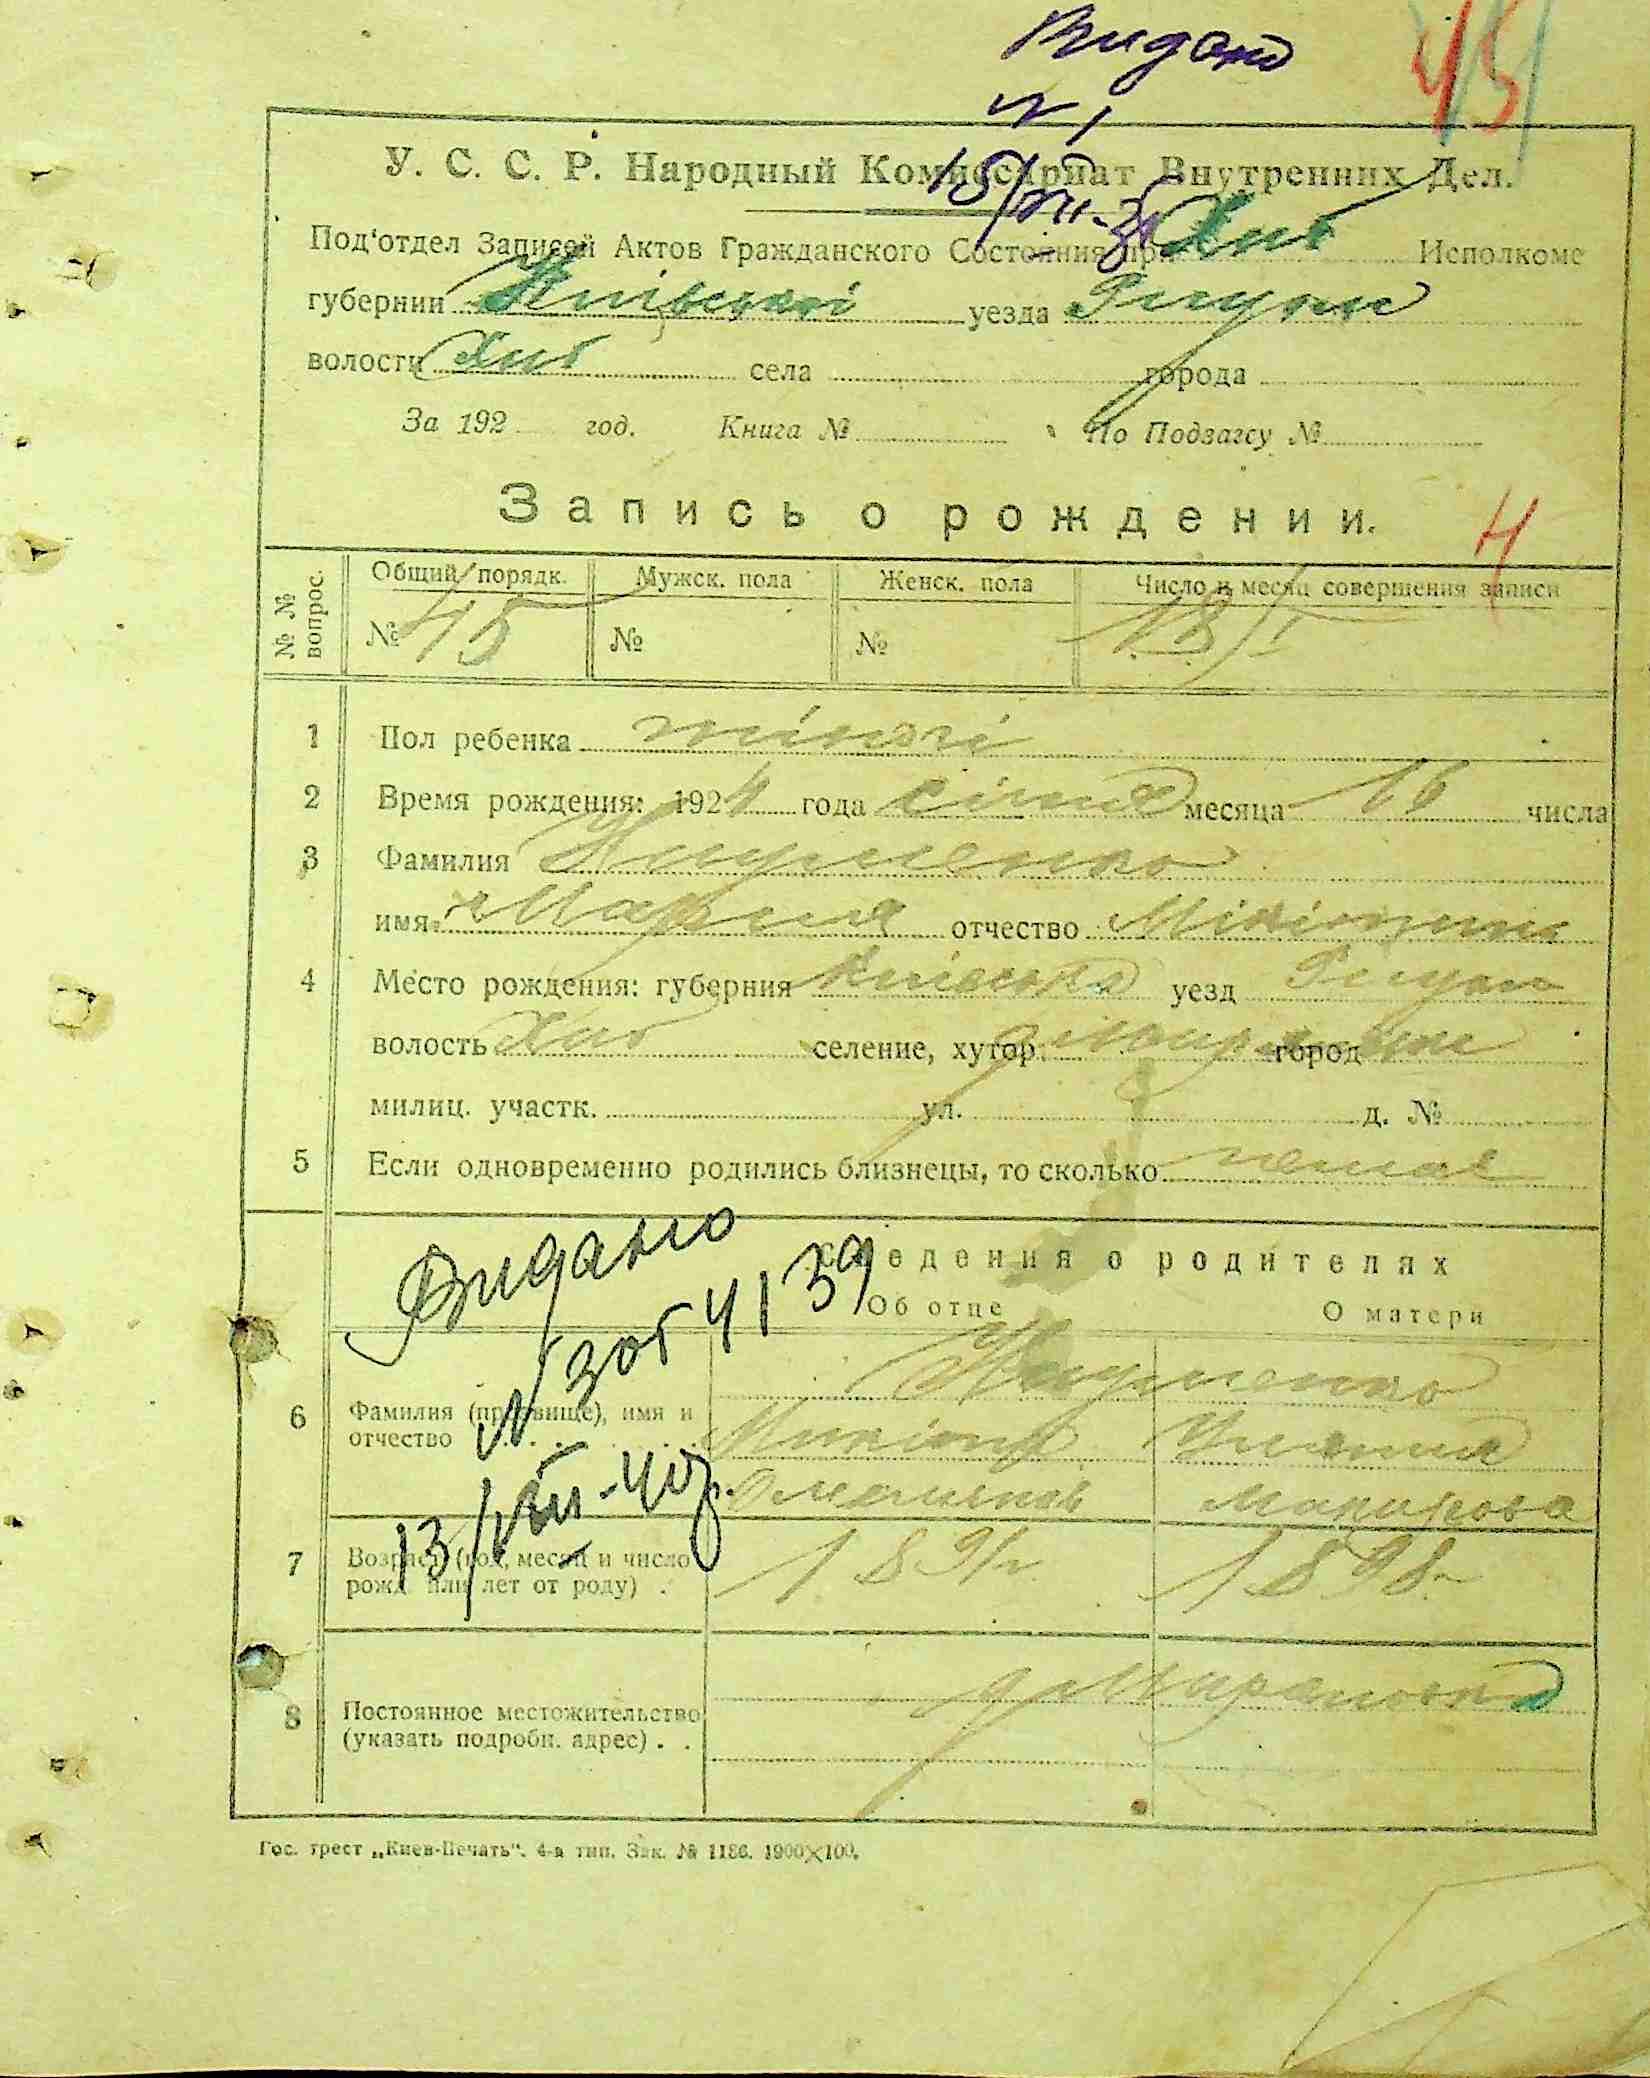 Видано
45
№ 1
У. С. С. Р. Народный Комиссариат Внутренних Дел.
15/VIII-
Под'отдел Записей Актов Гражданского Состояния при Хаб Исполкоме
губернии Київської уезда
волости Хаб села города
За 192 год. Книга № По Подзагсу №
Запись о рождении.
4
№ № вопрос. Общий порядк. Мужск. пола Женск. пола Число и месяц совершения записи
№ 45 № № 18/I
1 Пол ребенка жіночі
2 Время рождения: 1924 года січня месяца 16 числа
3 Фамилия Науменко
имя Мария отчество
4 Место рождения: губерния Київська уезд
волость Хаб селение, хутор город
милиц. участк. ул. д. №
5 Если одновременно родились близнецы, то сколько немає
Сведения о родителях
Об отце О матери
Видано
№ зог 4139
13/VIII-40р.
Науменко
6 Фамилия (прозвище), имя и
отчество
Уляна
Макарова
7 Возраст (год, месяц и число
рожд. или лет от роду) . 1891г. 1898г
8 Постоянное местожительство
(указать подробн. адрес) . .
Гос. трест „Киев-Печать". 4-я тип. Зак. № 1186. 1900×100.